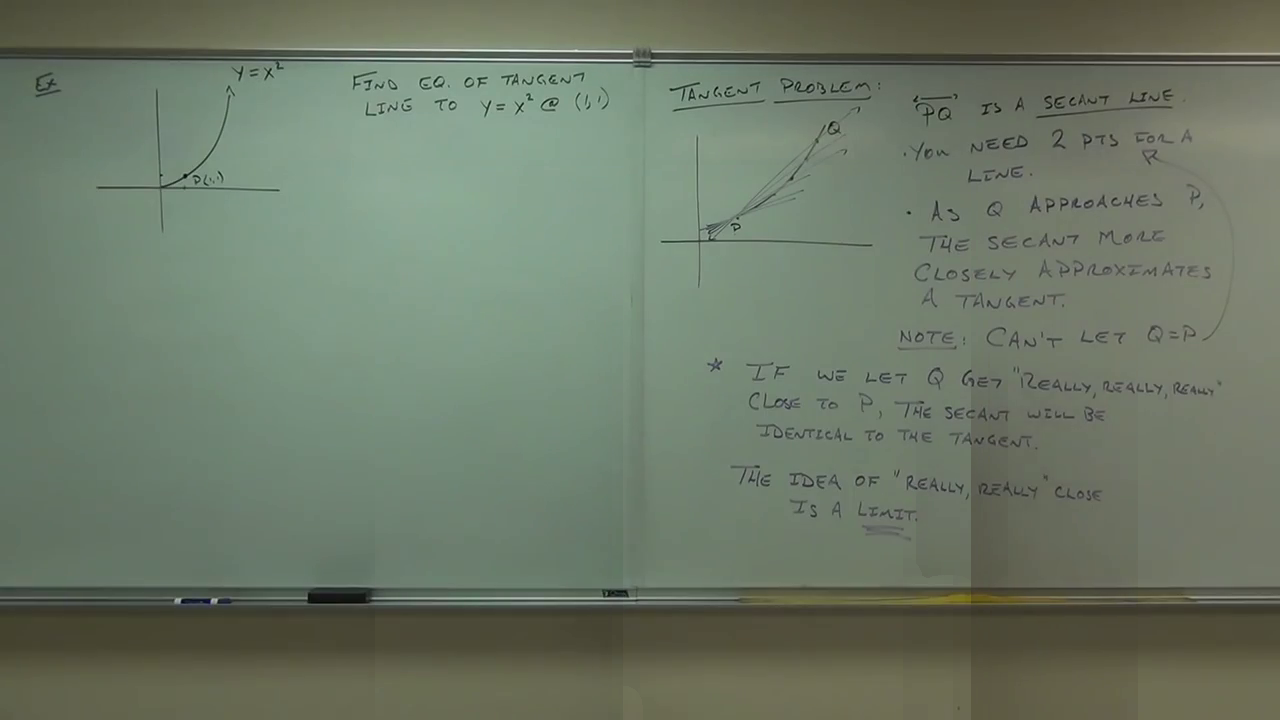 Ex
Y = X²
P(1,1)
FIND EQ. OF TANGENT
LINE TO Y = X² @ (1,1)
TANGENT PROBLEM:
Q
P
PQ IS A SECANT LINE.
· YOU NEED 2 PTS FOR A
LINE.
· AS Q APPROACHES P,
THE SECANT MORE
CLOSELY APPROXIMATES
A TANGENT.
NOTE: CAN'T LET Q=P
* IF WE LET Q GET "REALLY, REALLY, REALLY"
CLOSE TO P, THE SECANT WILL BE
IDENTICAL TO THE TANGENT.
THE IDEA OF "REALLY, REALLY" CLOSE
IS A LIMIT.